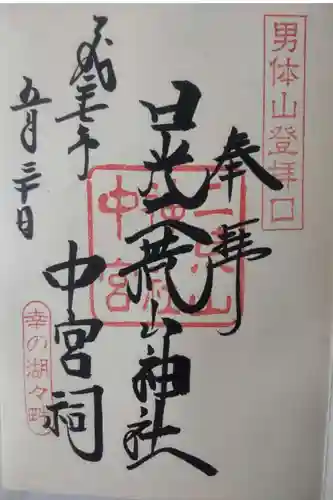 男体山登拝口
奉拝
日光二荒山神社
中宮祠
二荒山
神社
中宮
五月三十日
幸の湖々畔